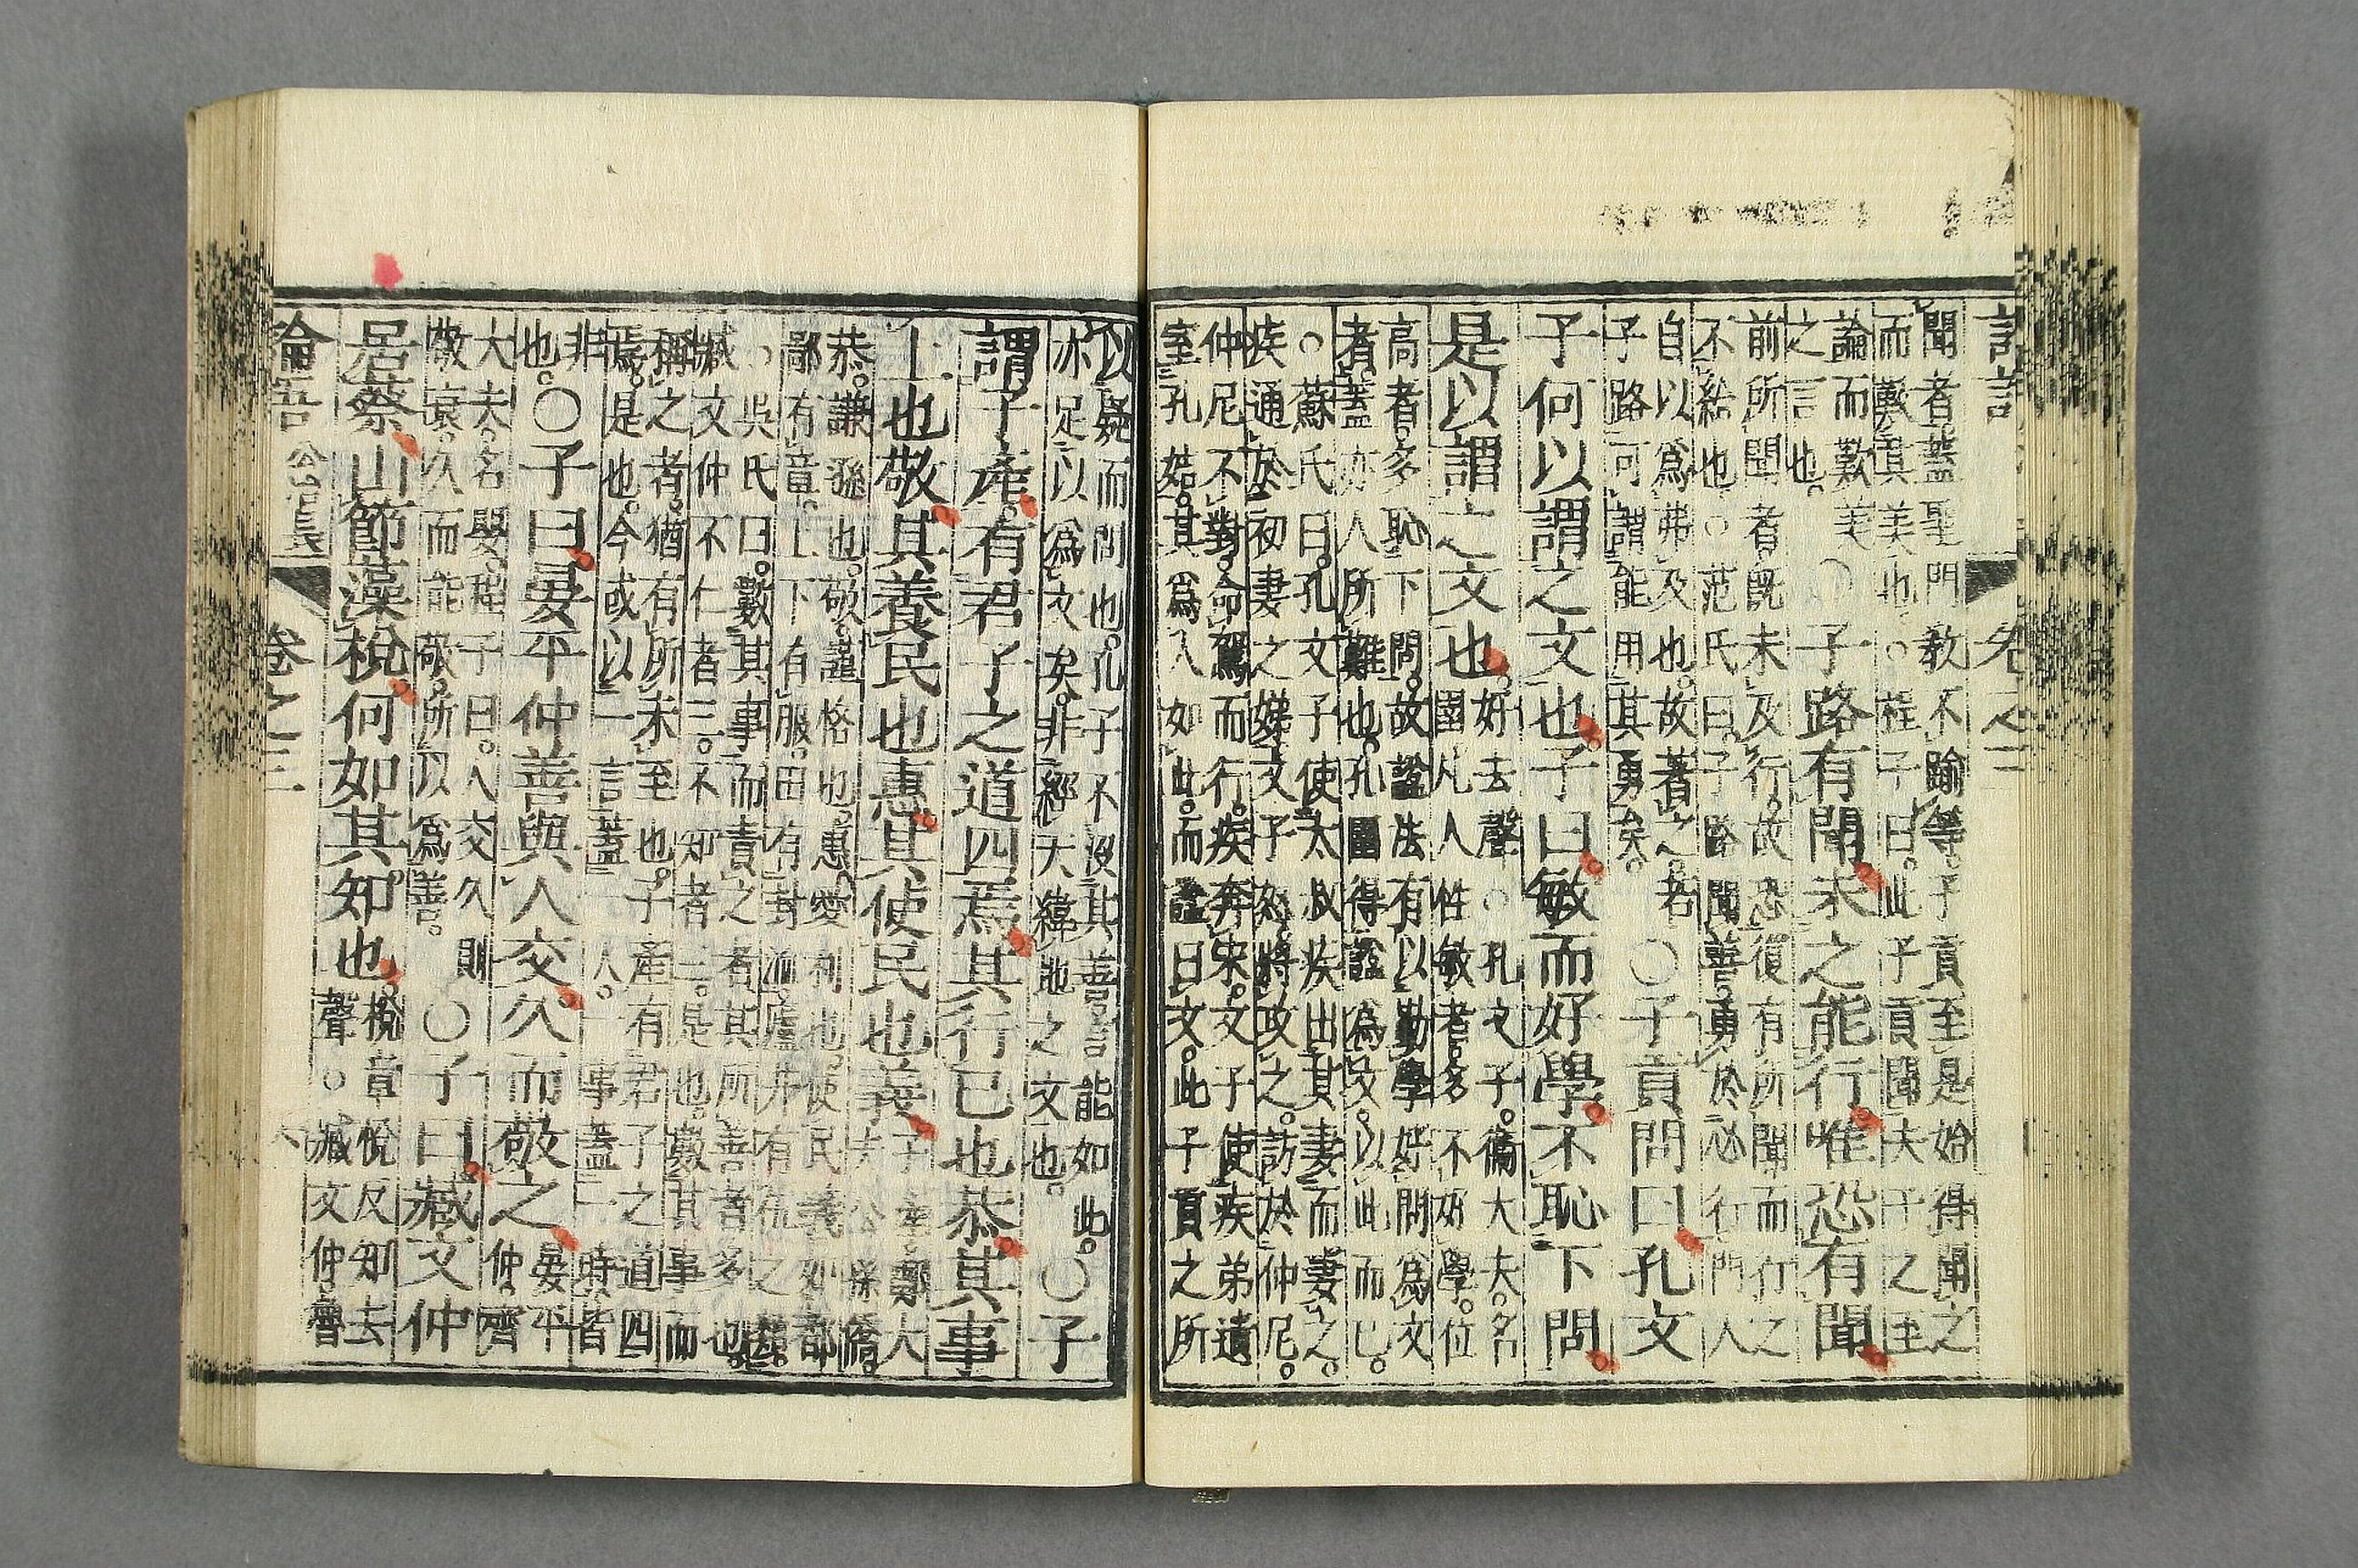 聞者。蓋聖門教不躐等。子貢至是始得聞之
而歎其美也。○程子曰。此子貢聞夫子之至
論而歎美
之言也。
○子路有聞未之能行唯恐有聞
前所聞者。既未及行。故恐復有所聞而行之
不給也。○范氏曰。子路聞善。勇於必行。門人
自以爲弗及也。故著之。若
子路可謂能用其勇矣。
○子貢問曰孔文
子何以謂之文也子曰敏而好學不恥下問
是以謂之文也。
好去聲○孔文子。衞大夫。名
圉凡人性敏者。多不好學。位
高者。多恥下問。故謚法有以勤學好問爲文
者。蓋亦人所難也。孔圉得謚爲文。以此而已。
○蘇氏曰。孔文子使太叔疾出其妻而妻之。
疾通於初妻之娣文子怒。將攻之。訪於仲尼。
仲尼不對。命駕而行。疾奔宋。文子使疾弟遺
室孔姞。其爲人如此。而謚曰文。此子貢之所
以疑而問也。孔子不沒其善言能如此。
亦足以爲文矣。非經天緯地之文也。
○子
謂子產。有君子之道四焉其行已也恭其事
上也敬其養民也惠其使民也義
子產。鄭大
夫公孫僑。
恭。謙遜也。敬。謹恪也。惠。愛利也。使民義如都
鄙有章。上下有服。田有封洫。廬井有伍之類。
○吳氏曰。數其事而責之者其所善者多也。
臧文仲不仁者三。不知者三。是也。數其事而
稱之者。猶有所未至也。子產有君子之道四
焉。是也。今或以一言蓋一人。一事蓋一時。皆
非
也。
○子曰晏平仲善與人交久而敬之
晏平
仲。齊
大夫。名嬰。程子曰。人交久則
敬衰。久而能敬。所以爲善。
○子曰臧文仲
居蔡山節藻梲何如其知也。
梲章悅反知去
聲。○臧文仲。魯
論語 公冶長 卷之三